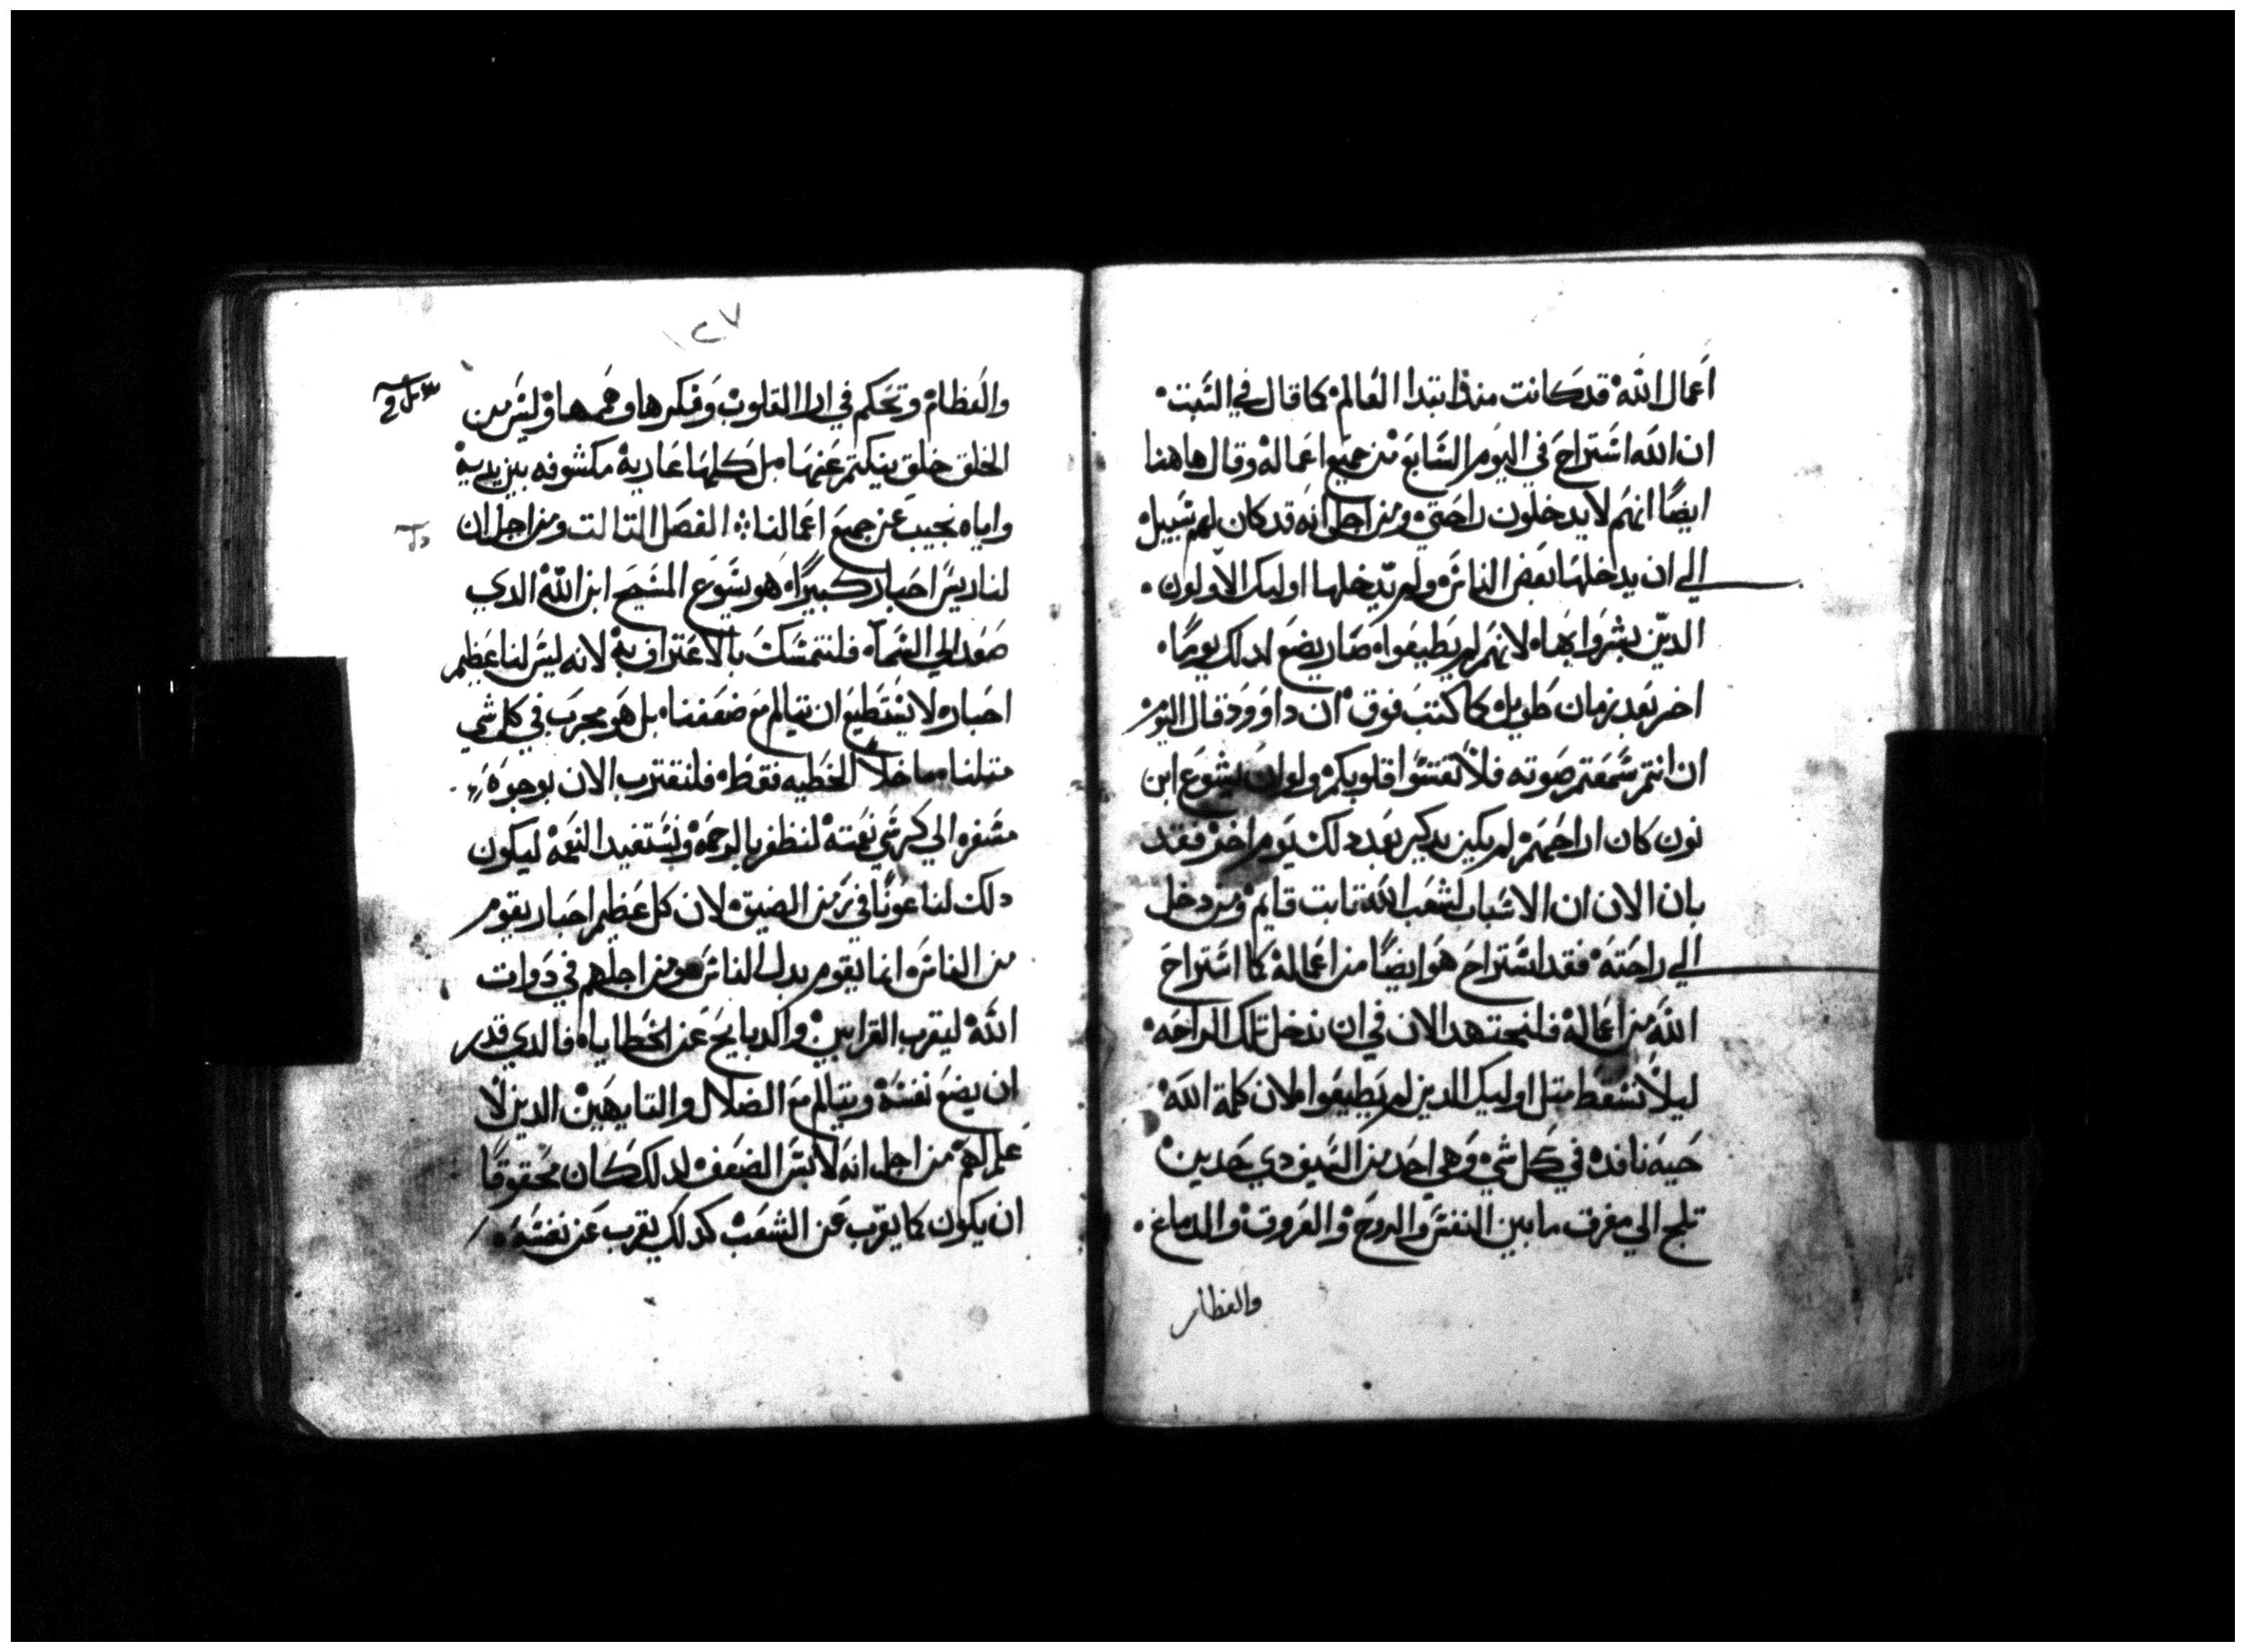 اعمال الله قد كانت منذ ابتدا العالم كما قال في السبت
ان الله استراح في اليوم السابع من جميع اعماله وقال هاهنا
ايضًا انهم لا يدخلون راحتي ومن اجل انه قد كان لهم سبيل
الي ان يدخلها بعض الناس ولم يدخلها اوليك الاولون
الدين بشروا بها لانهم لم يطيعوا صار يضع لدلك يومًا
اخر بعد زمان طويل كما كتب فوق ان داوود قال اليوم
ان انتم سمعتم صوته فلا تقسوا قلوبكم ولو ان يشوع ابن
نون كان اراحهم لم يكن يدكر بعد دلك يوم اخر فقد
بان الان ان الاسبات لشعب الله تابت قايم ومن دخل
الي راحته فقد استراح هو ايضًا من اعماله كما استراح
الله من اعماله فلنجتهد الان في ان ندخل تلك الراحه
ليلا نسقط متل اوليك الدين لم يطيعوا لان كلمة الله
حيه نافده في كل شي وهي احد من السيف دي حدين
تلج الي مفرق ما بين النفس والروح والعروق والدماغ
والعظار
١٢٧
والعظام وتحكم في ارا القلوب وفكرها وهمها وليس من
الخلق خلق ينكتم عنها بل كلها عاريه مكشوفه بين يديه
واياه نجيب عن جميع اعمالنا الفصل التالت ومن اجل ان
لنا ريس احبار كبيرًا هو يسوع المسيح ابن الله الدي
صعد الي السما فلنتمسك بالاعتراف به لانه ليس لنا عظيم
احبار لا يستطيع ان يتالم مع ضعفنا بل هو مجرب في كل شي
متلنا ما خلا الخطيه فقط فلنقترب الان بوجوه
مسفره الي كرسي نعمته لنظفر بالرحمه ونستفيد النعمه ليكون
دلك لنا عونًا في زمن الضيق لان كل عظيم احبار يقوم
من الناس انما يقوم بدل الناس ومن اجلهم في دوات
الله ليقرب القرابين والدبايح عن الخطايا فالدي قدر
ان يضع نفسه ويتالم مع الضلال والتايهين الدين لا
علم لهم من اجل انه لابس الضعف لدلك كان محقوقًا
ان يكون كما يقرب عن الشعب كدلك يقرب عن نفسه